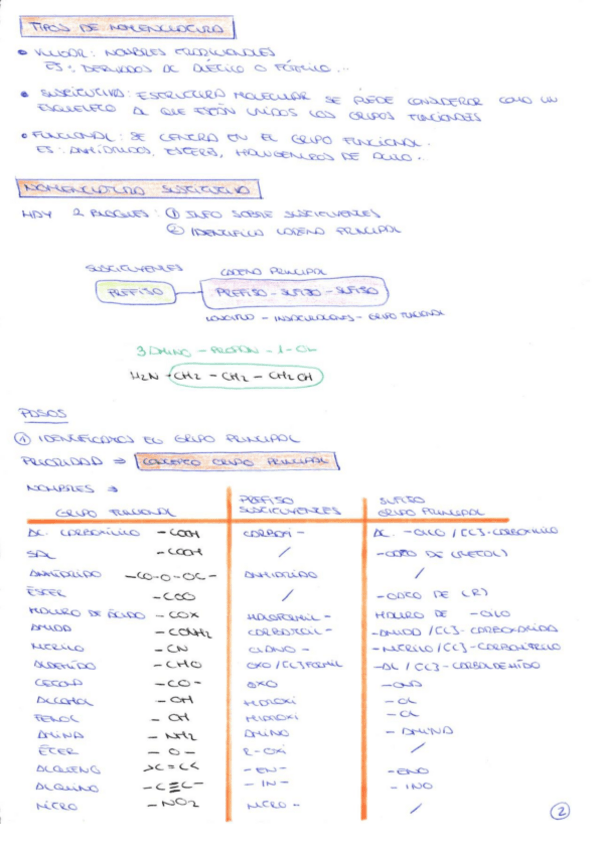 TIPOS DE NOMENCLATURA
• VULGAR: NOMBRES TRADICIONALES
ES: DERIVADOS DE METILO O FÓRMILO...
• SUSTITUTIVA: ESTRUCTURA MOLECULAR SE PUEDE CONSIDERAR COMO UN
ESQUELETO AL QUE ESTÁN UNIDOS LOS GRUPOS FUNCIONALES
• FUNCIONAL: SE CENTRA EN EL GRUPO FUNCIONAL.
ES: ANHÍDRIDOS, ESTERES, HALOGENUROS DE ACILO...
NOMENCLATURA SUSTITUTIVA
HAY 2 BLOQUES: ① INFO SOBRE SUSTITUYENTES
② IDENTIFICA CADENA PRINCIPAL
SUSTITUYENTES CADENA PRINCIPAL
PREFIJO PREFIJO - SUFIJO - SUFIJO
LONGITUD - INSATURACIONES - GRUPO FUNCIONAL
3 AMINO - PROPAN - 1 - OL
H2N - CH2 - CH2 - CH2OH
PASOS
① IDENTIFICAMOS EL GRUPO PRINCIPAL
PRIORIDAD ⇒ CONCEPTO GRUPO PRINCIPAL
NOMBRES ⇒
GRUPO FUNCIONAL PREFIJO SUSTITUYENTES SUFIJO GRUPO PRINCIPAL
AC. CARBOXÍLICO -COOH CARBOXI- AC. -OICO / [C]-CARBOXÍLICO
SAL -COOH / -OATO DE (METAL)
ANHÍDRIDO -CO-O-OC- ANHÍDRIDO /
ÉSTER -COO / -OATO DE (R)
HALURO DE ÁCIDO -COX HALOFORMIL- HALURO DE -OILO
AMIDA -CONH2 CARBAMOIL- -AMIDA / [C]-CARBOXAMIDA
NITRILO -CN CIANO- -NITRILO / [C]-CARBONITRILO
ALDEHÍDO -CHO OXO / [C] FORMIL -AL / [C]-CARBALDEHÍDO
CETONA -CO- OXO -ONA
ALCOHOL -OH HIDROXI -OL
FENOL -OH HIDROXI -OL
AMINA -NH2 AMINO -AMINA
ÉTER -O- R-OXI /
ALQUENO >C=C< -EN- -ENO
ALQUINO -C≡C- -IN- -INO
NITRO -NO2 NITRO- /
②